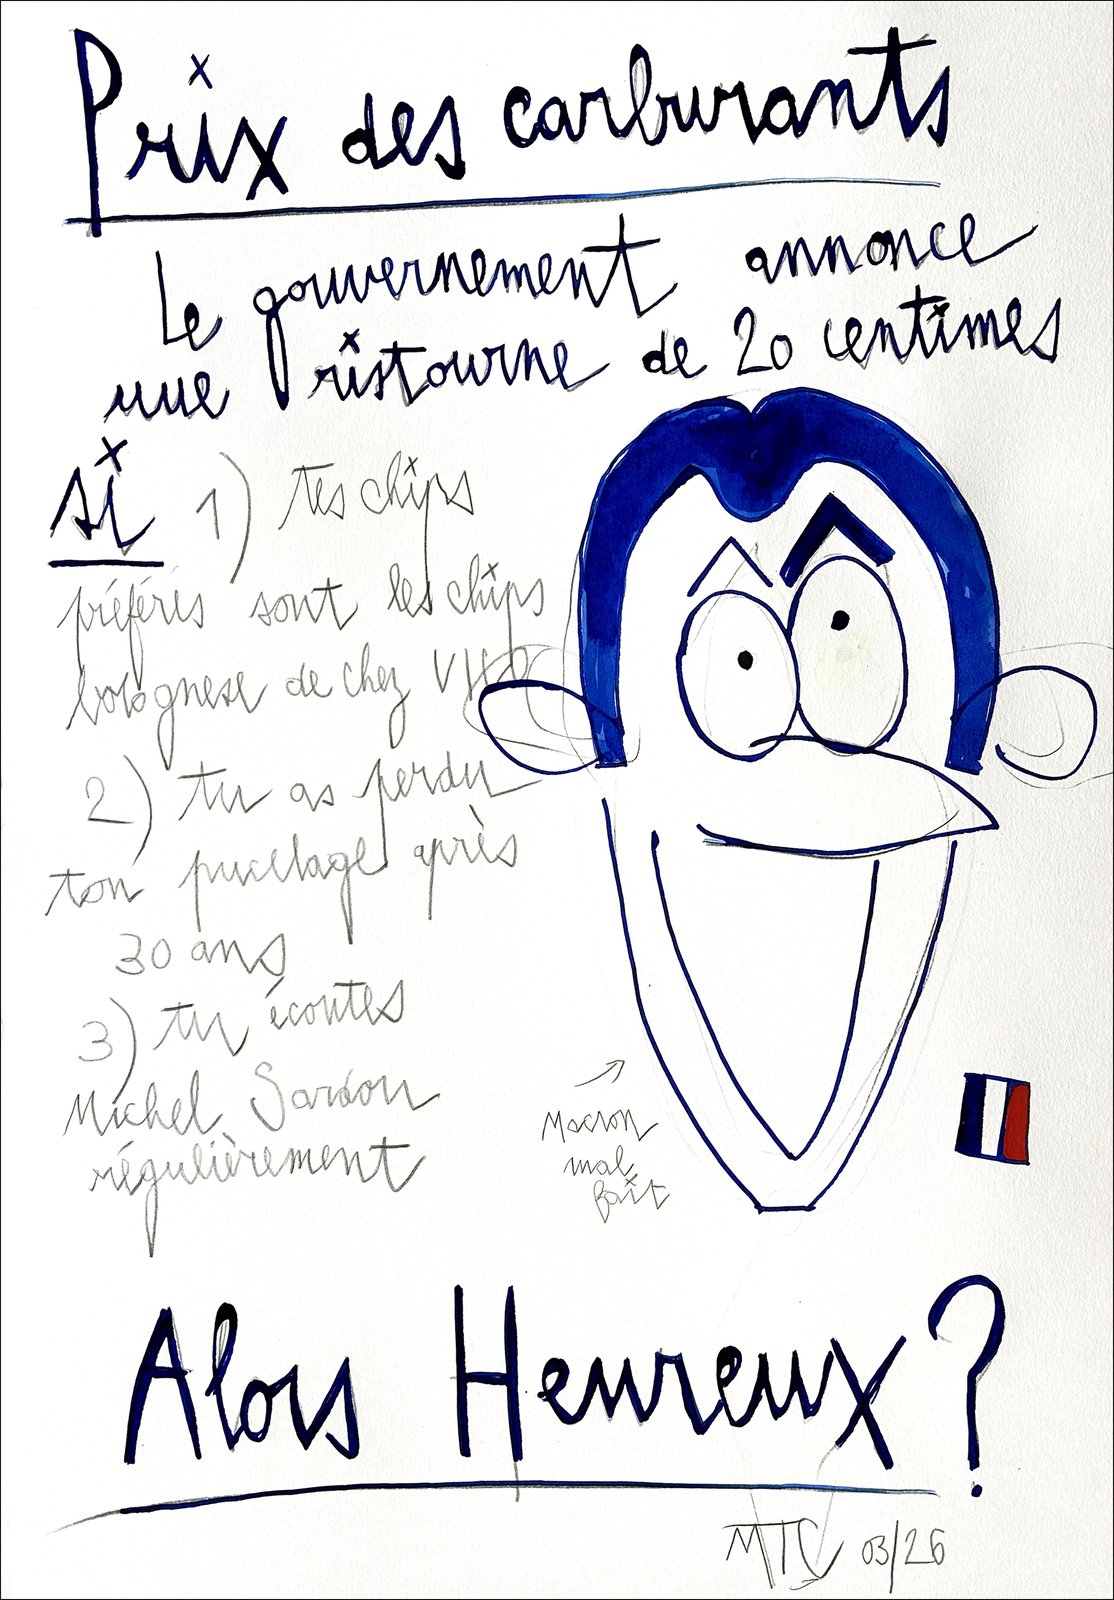 Prix des carburants
Le gouvernement annonce
une ristourne de 20 centimes
si 1) tes chips
préférés sont les chips
bolognese de chez VICO
2) tu as perdu
ton pucelage après
30 ans
3) tu écoutes
Michel Sardou
régulièrement
Macron
mal
fait
Alors Heureux ?
MTC 03/26